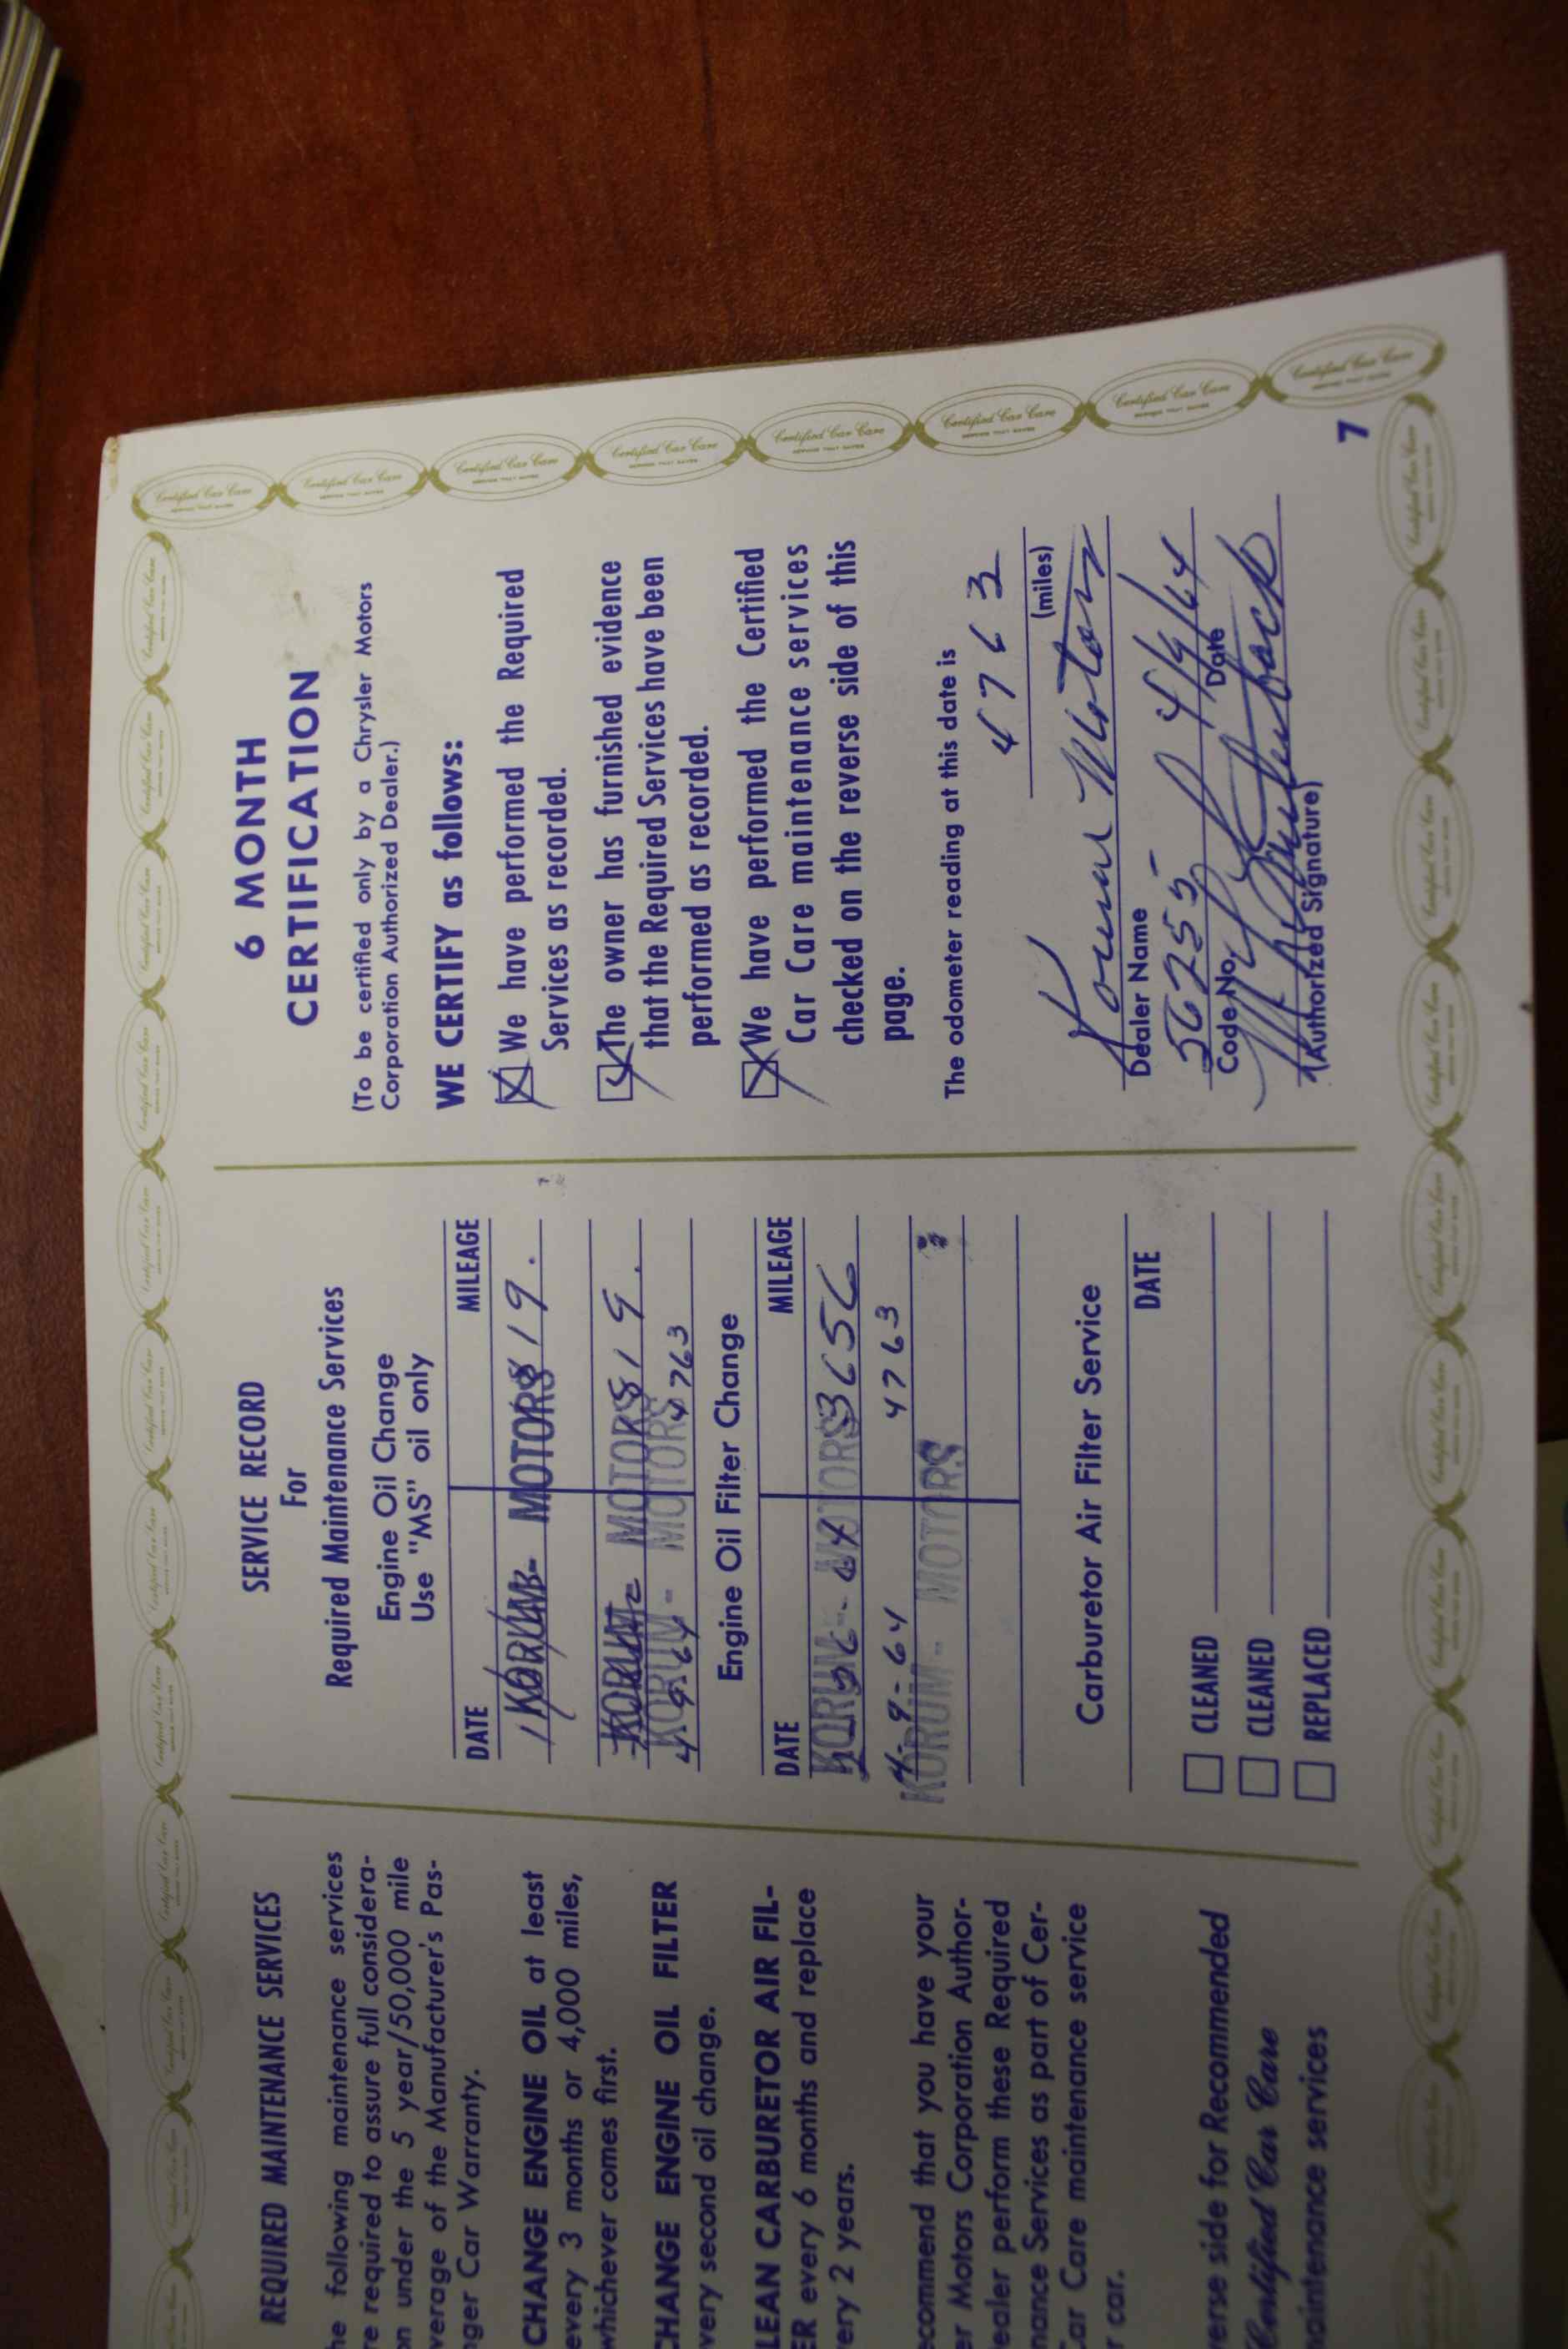 REQUIRED MAINTENANCE SERVICES
he following maintenance services
re required to assure full considera-
on under the 5 year/50,000 mile
verage of the Manufacturer's Pas-
nger Car Warranty.
CHANGE ENGINE OIL at least
every 3 months or 4,000 miles,
whichever comes first.
CHANGE ENGINE OIL FILTER
very second oil change.
LEAN CARBURETOR AIR FIL-
ER every 6 months and replace
ery 2 years.
ecommend that you have your
er Motors Corporation Author-
ealer perform these Required
nance Services as part of Cer-
Car Care maintenance service
r car.
verse side for Recommended
Certified Car Care
aintenance services
SERVICE RECORD
For
Required Maintenance Services
Engine Oil Change
Use "MS" oil only
DATE MILEAGE
KORUM- MOTORS 819.
KORUM- MOTORS 819.
KORUM- MOTORS
4-9-64 4763
Engine Oil Filter Change
DATE MILEAGE
KORUM- MOTORS 3656
4-9-64 4763
KORUM- MOTORS
Carburetor Air Filter Service
DATE
CLEANED
CLEANED
REPLACED
6 MONTH
CERTIFICATION
(To be certified only by a Chrysler Motors
Corporation Authorized Dealer.)
WE CERTIFY as follows:
We have performed the Required
Services as recorded.
The owner has furnished evidence
that the Required Services have been
performed as recorded.
We have performed the Certified
Car Care maintenance services
checked on the reverse side of this
page.
The odometer reading at this date is
4763
(miles)
Korum Motors
Dealer Name
56255 4/9/64
Code No. Date
(Authorized Signature)
7
Certified Car Care
SERVICE THAT SAVES